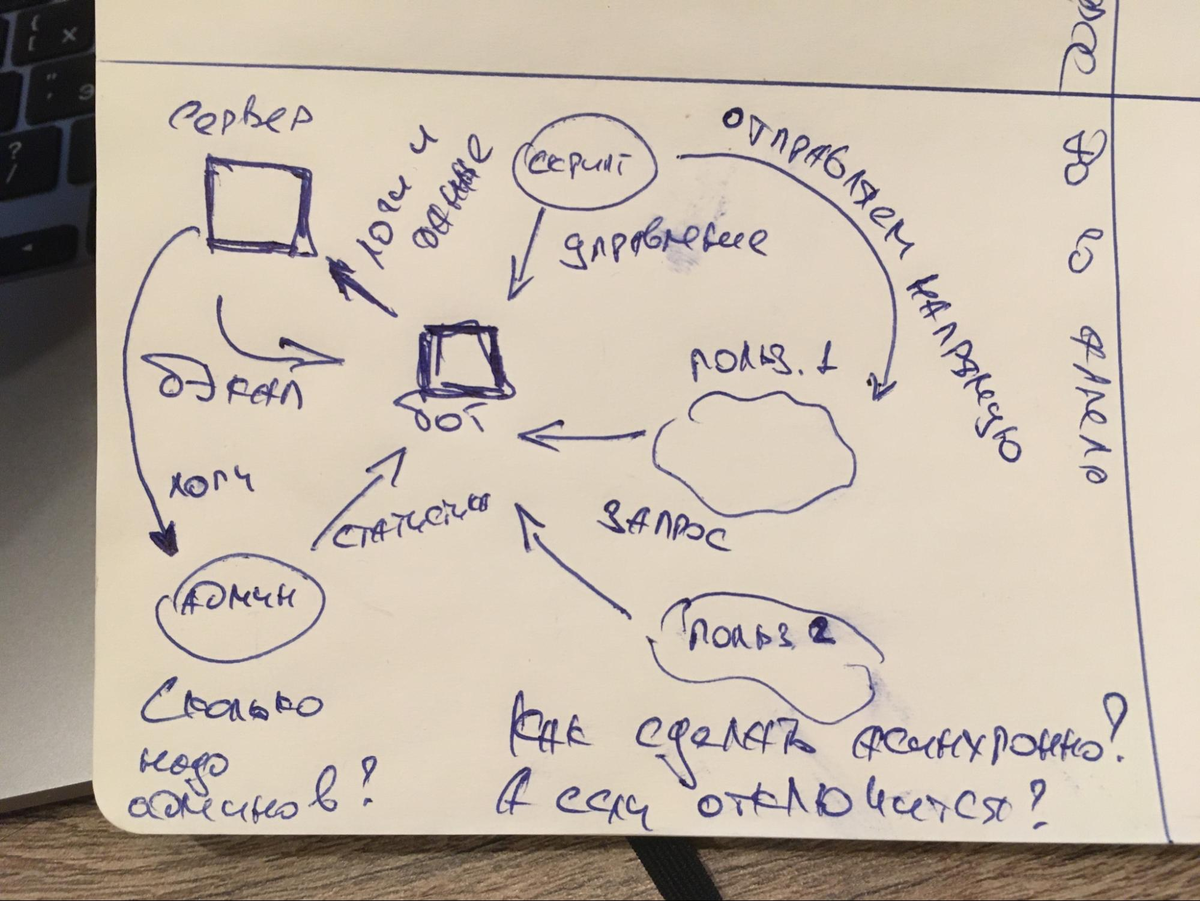 Сервер
логи и
данные
скрипт
управление
отправляем напрямую
бэкап
бот
польз. 1
логи
статистика
запрос
админ
польз 2
Сколько
надо
админов?
Как сделать асинхронно?
А если отключится?
апреля